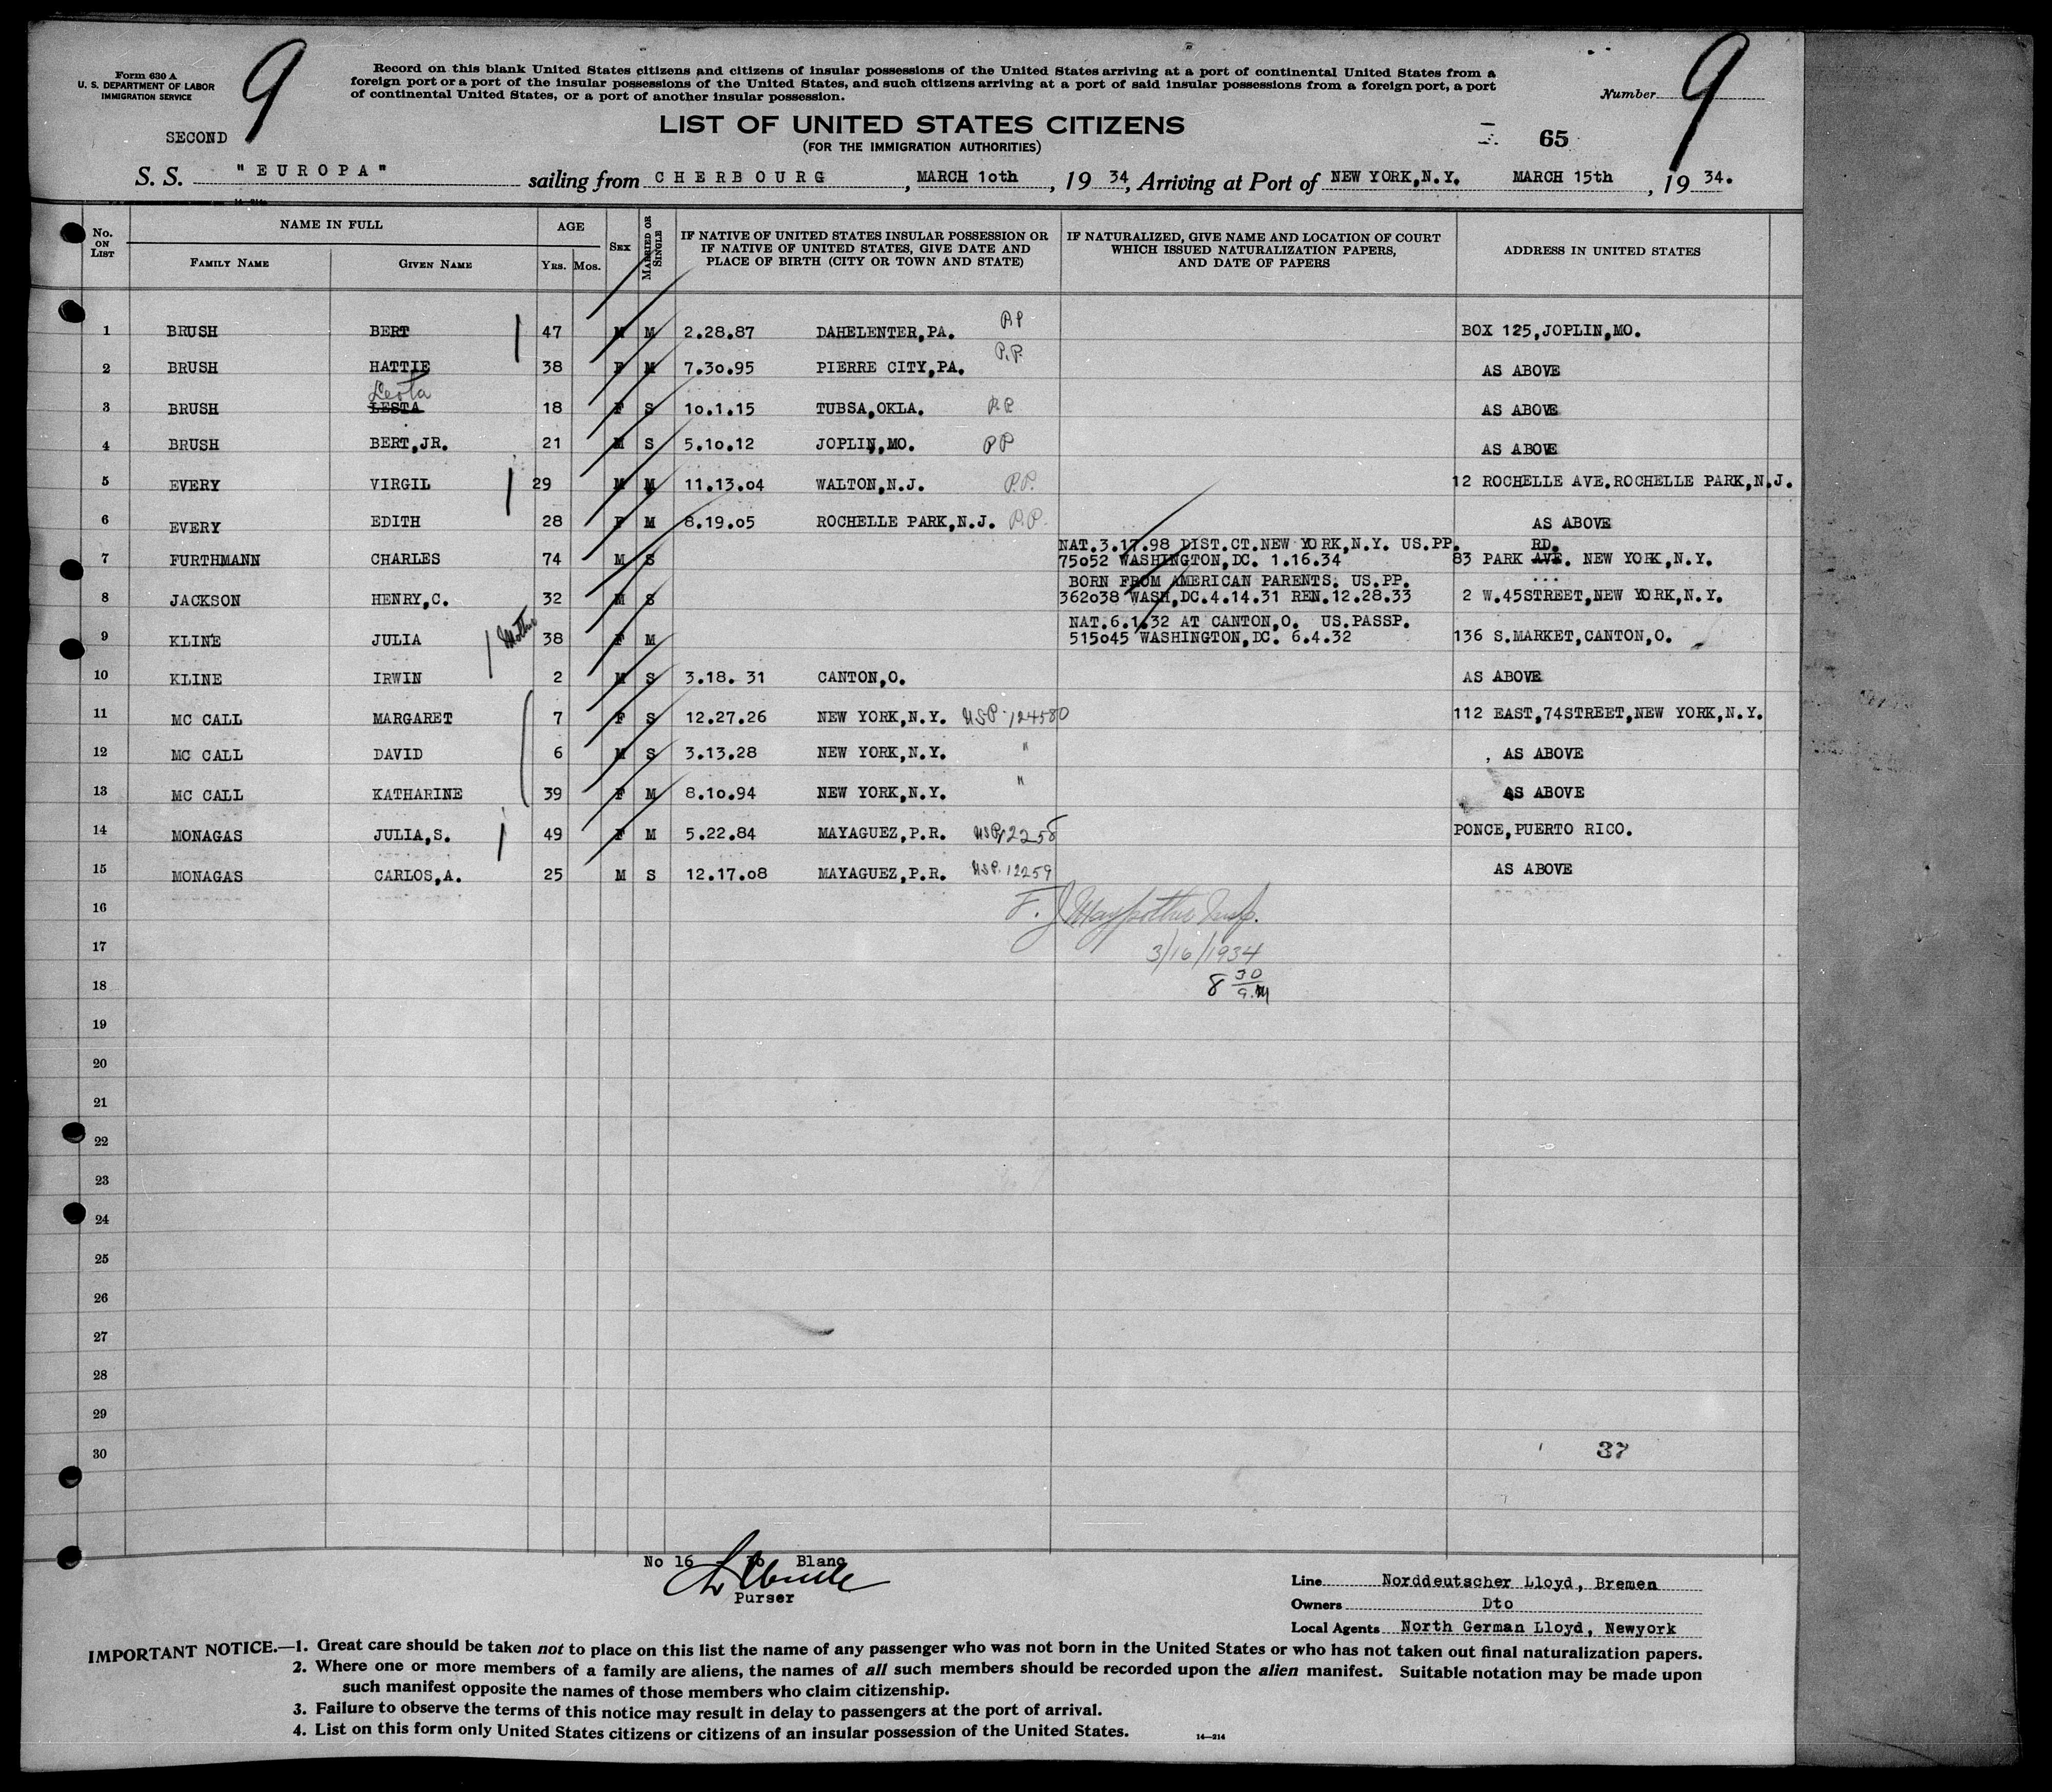 Form 630 A
U. S. DEPARTMENT OF LABOR
IMMIGRATION SERVICE
9
Record on this blank United States citizens and citizens of insular possessions of the United States arriving at a port of continental United States from a
foreign port or a port of the insular possessions of the United States, and such citizens arriving at a port of said insular possessions from a foreign port, a port
of continental United States, or a port of another insular possession.
Number 9
SECOND
LIST OF UNITED STATES CITIZENS
(FOR THE IMMIGRATION AUTHORITIES)
65
S. S. "EUROPA" sailing from CHERBOURG, MARCH 10th, 19 34, Arriving at Port of NEW YORK,N.Y. MARCH 15th, 19 34.
No. ON LIST
NAME IN FULL
FAMILY NAME
GIVEN NAME
AGE
YRS. MOS.
SEX
MARRIED OR SINGLE
IF NATIVE OF UNITED STATES INSULAR POSSESSION OR
IF NATIVE OF UNITED STATES, GIVE DATE AND
PLACE OF BIRTH (CITY OR TOWN AND STATE)
IF NATURALIZED, GIVE NAME AND LOCATION OF COURT
WHICH ISSUED NATURALIZATION PAPERS,
AND DATE OF PAPERS
ADDRESS IN UNITED STATES
1 BRUSH BERT 47 M M 2.28.87 DAHELENTER,PA. PP BOX 125,JOPLIN,MO.
2 BRUSH HATTIE 38 F M 7.30.95 PIERRE CITY,PA. P.P. AS ABOVE
Leota
3 BRUSH LESTA 18 F S 10.1.15 TUBSA,OKLA. P.P. AS ABOVE
4 BRUSH BERT,JR. 21 M S 5.10.12 JOPLIN,MO. PP AS ABOVE
5 EVERY VIRGIL 29 M M 11.13.04 WALTON,N.J. P.P. 12 ROCHELLE AVE.ROCHELLE PARK,N.J.
6 EVERY EDITH 28 F M 8.19.05 ROCHELLE PARK,N.J. P.P. AS ABOVE
NAT.3.17.98 DIST.CT.NEW YORK,N.Y. US.PP. RD.
7 FURTHMANN CHARLES 74 M S 75052 WASHINGTON,DC. 1.16.34 83 PARK AVE. NEW YORK,N.Y.
BORN FROM AMERICAN PARENTS. US.PP.
8 JACKSON HENRY,C. 32 M S 362038 WASH,DC.4.14.31 REN.12.28.33 2 W.45STREET,NEW YORK,N.Y.
NAT.6.1.32 AT CANTON,O. US.PASSP.
9 KLINE JULIA Mother 38 F M 515045 WASHINGTON,DC. 6.4.32 136 S.MARKET,CANTON,O.
10 KLINE IRWIN 2 M S 3.18. 31 CANTON,O. AS ABOVE
11 MC CALL MARGARET 7 F S 12.27.26 NEW YORK,N.Y. USP.124580 112 EAST,74STREET,NEW YORK,N.Y.
12 MC CALL DAVID 6 M S 3.13.28 NEW YORK,N.Y. " AS ABOVE
13 MC CALL KATHARINE 39 F M 8.10.94 NEW YORK,N.Y. " AS ABOVE
14 MONAGAS JULIA,S. 49 F M 5.22.84 MAYAGUEZ,P.R. USP.12258 PONCE,PUERTO RICO.
15 MONAGAS CARLOS,A. 25 M S 12.17.08 MAYAGUEZ,P.R. USP.12259 AS ABOVE
16 F. J. Insp.
17 3/16/1934
18 8 30 a.m
19
20
21
22
23
24
25
26
27
28
29
30 37
No 16 - 30 Blanc
Purser
Line Norddeutscher Lloyd, Bremen
Owners Dto
Local Agents North German Lloyd, Newyork
IMPORTANT NOTICE.—1. Great care should be taken not to place on this list the name of any passenger who was not born in the United States or who has not taken out final naturalization papers.
2. Where one or more members of a family are aliens, the names of all such members should be recorded upon the alien manifest. Suitable notation may be made upon
such manifest opposite the names of those members who claim citizenship.
3. Failure to observe the terms of this notice may result in delay to passengers at the port of arrival.
4. List on this form only United States citizens or citizens of an insular possession of the United States.
14—214